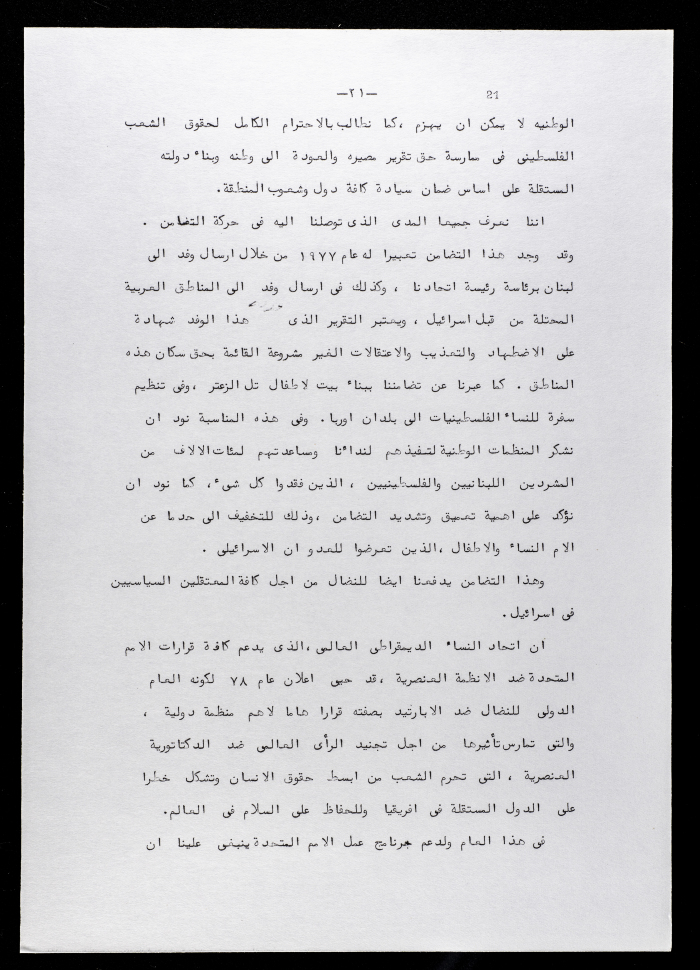 21
—٢١—
الوطنيه لا يمكن ان يهزم ،كما نطالب بالاحترام الكامل لحقوق الشعب
الفلسطينى فى ممارسة حق تقرير مصيره والعودة الى وطنه وبناء دولته
المستقلة على اساس ضمان سيادة كافة دول وشعوب المنطقة.
اننا نعرف جميعا المدى الذى توصلنا اليه فى حركة التضامن .
وقد وجد هذا التضامن تعبيرا له عام ١٩٧٧ من خلال ارسال وفد الى
لبنان برئاسة رئيسة اتحادنا ، وكذلك فى ارسال وفد الى المناطق العربية
المحتلة من قبل اسرائيل ، ويعتبر التقرير الذى هذا الوفد شهادة
على الاضطهاد والتعذيب والاعتقالات الغير مشروعة القائمة بحق سكان هذه
المناطق . كما عبرنا عن تضامننا ببناء بيت لاطفال تل الزعتر ،وفى تنظيم
سفرة للنساء الفلسطينيات الى بلدان اوربا. وفى هذه المناسبة نود ان
نشكر المنظمات الوطنية لتنفيذهم لندائنا ومساعدتهم لمئات الالاف من
المشردين اللبنانيين والفلسطينيين ، الذين فقدوا كل شىء، كما نود ان
نؤكد على اهمية تعميق وتشديد التضامن ،وذلك للتخفيف الى حد ما عن
الام النساء والاطفال ،الذين تعرضوا للعدو ان الاسرائيلى .
وهذا التضامن يدفعنا ايضا للنضال من اجل كافة المعتقلين السياسيين
فى اسرائيل.
ان اتحاد النساء الديمقراطى العالمى ،الذى يدعم كافة قرارات الامم
المتحدة ضد الانظمة العنصرية ، قد حيى اعلان عام ٧٨ لكونه العام
الدولى للنضال ضد الابارتيد بصفته قرارا هاما لاهم منظمة دولية ،
والتى تمارس تأثيرها من اجل تجنيد الرأى العالمى ضد الدكتاتورية
العنصرية ، التى تحرم الشعب من ابسط حقوق الانسان وتشكل خطرا
على الدول المستقلة فى افريقيا وللحفاظ على السلام فى العالم.
فى هذا العام ولدعم جرنامج عمل الامم المتحدة ينبغى علينا ان